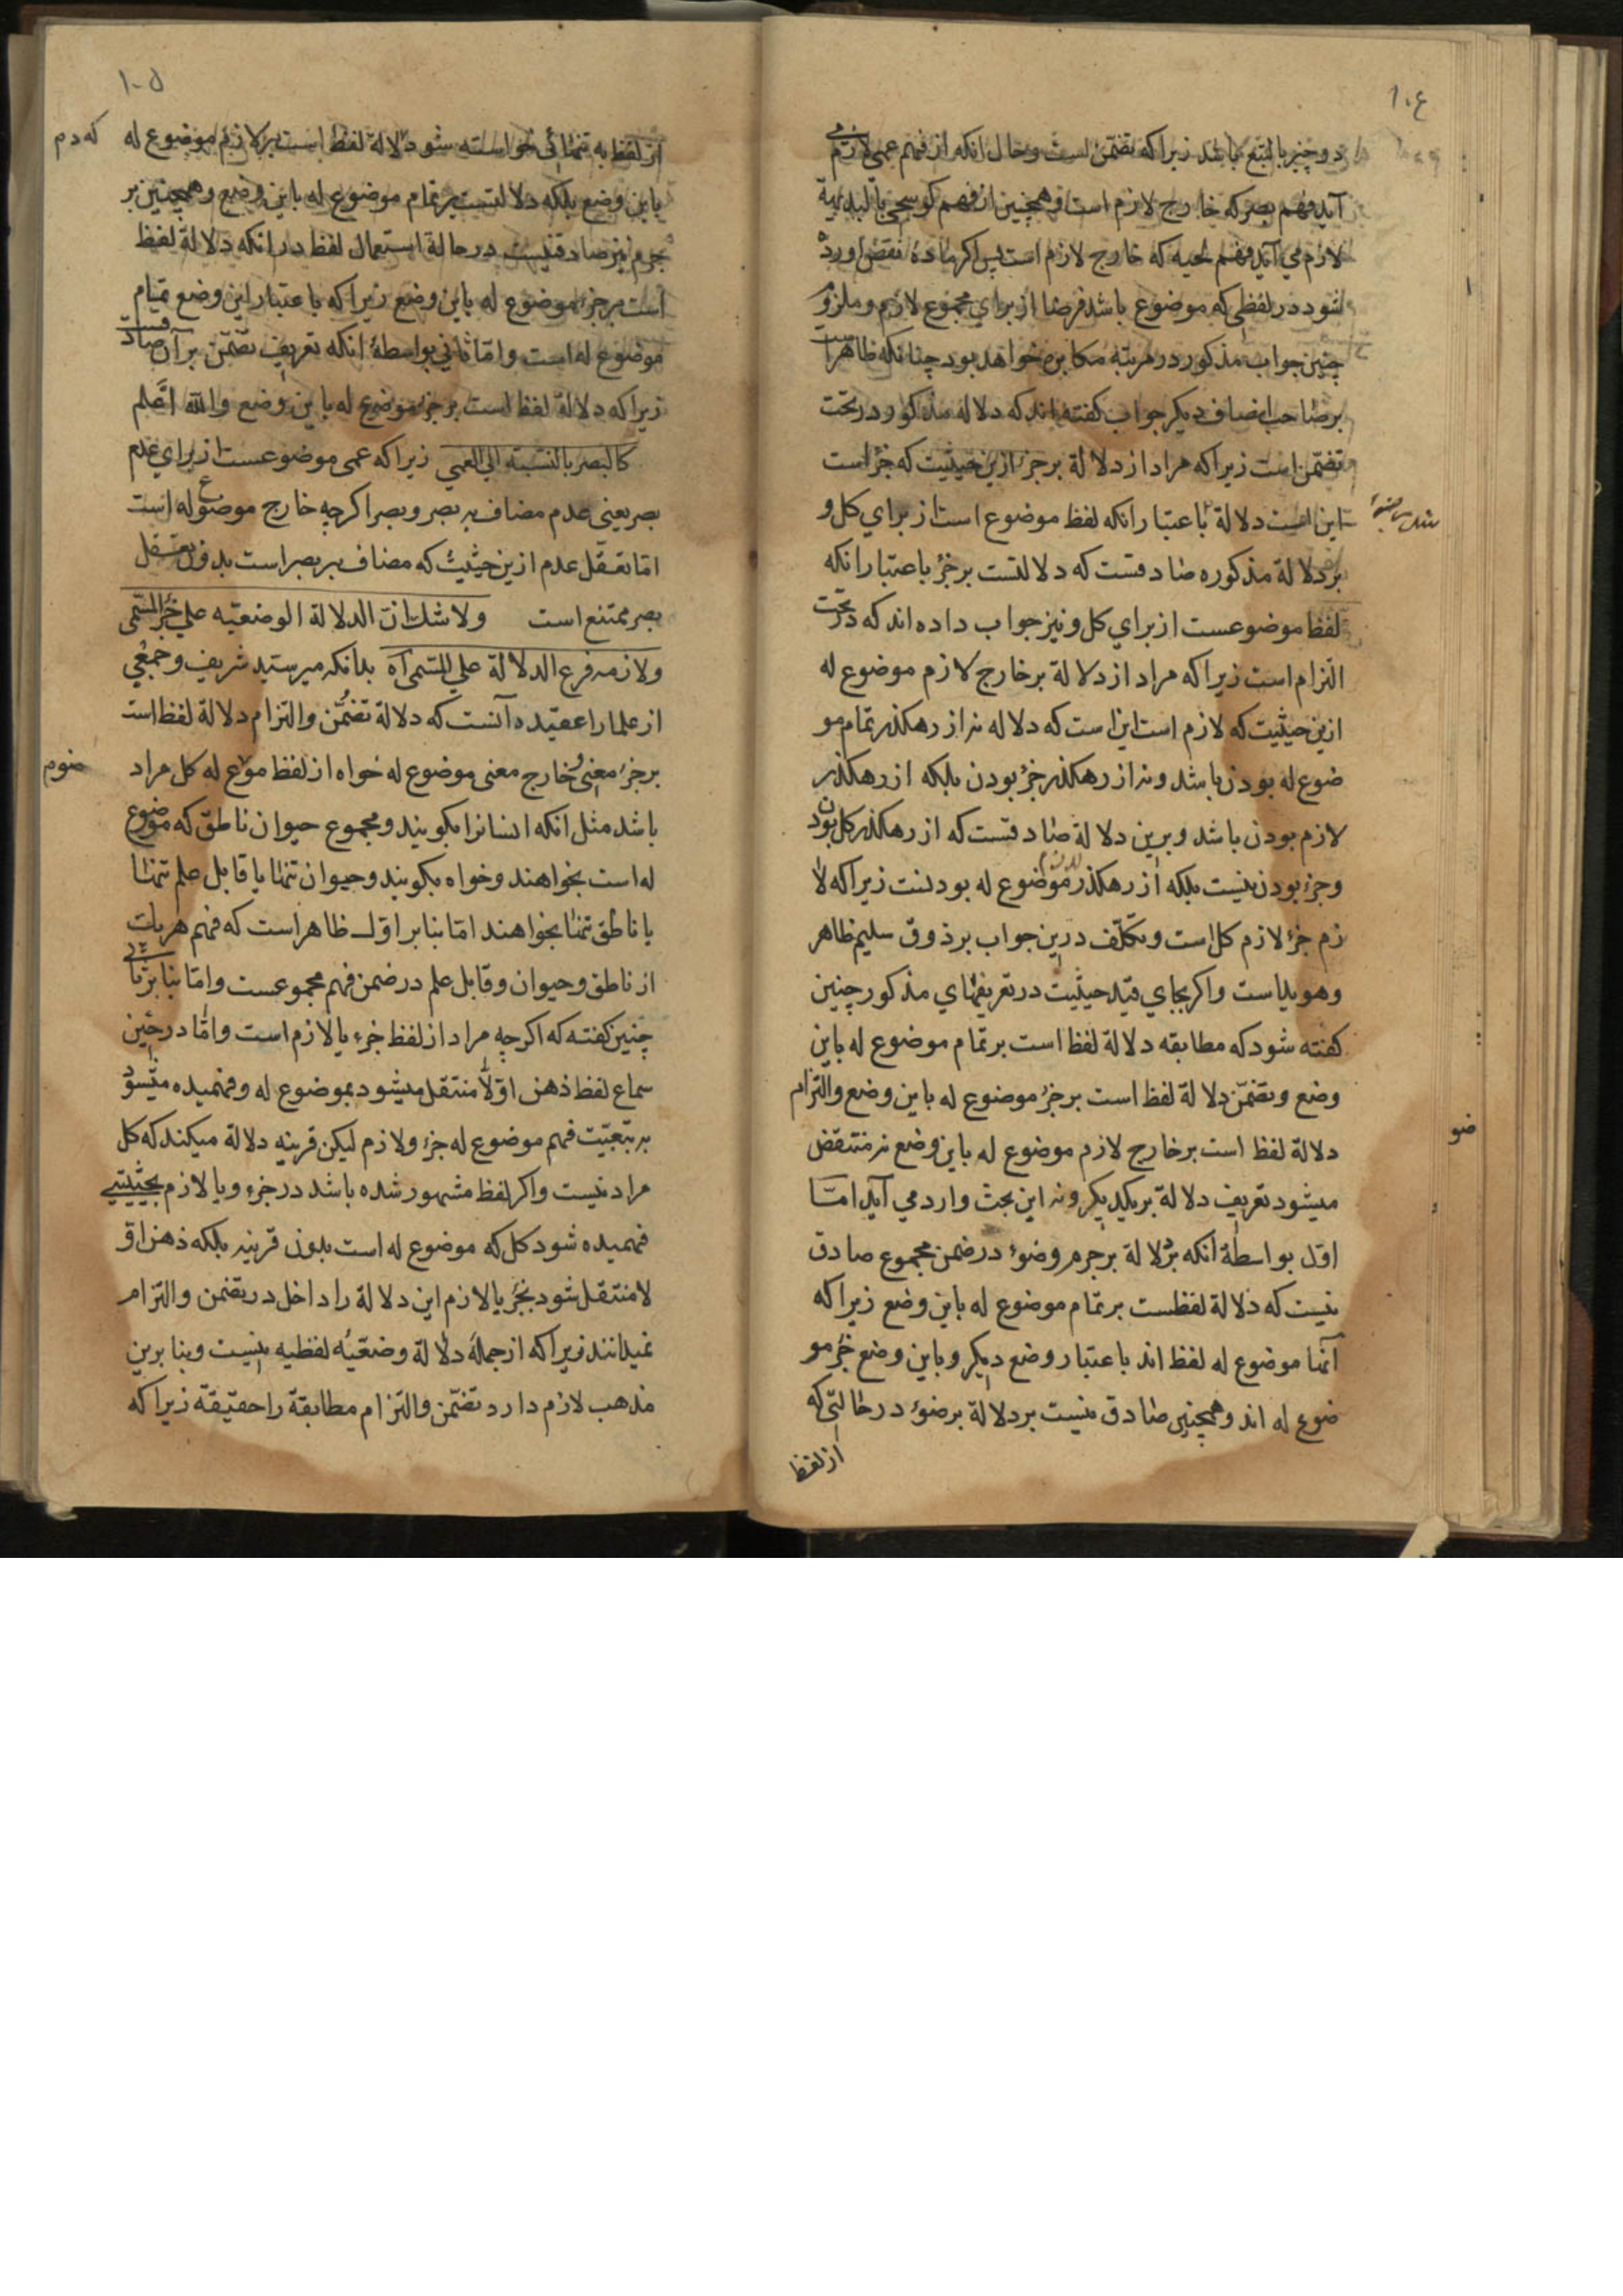 ۱۰۴
دو چیز بالتبع باشد زیرا که تضمن است و حال انکه از فهم عمی لازم می
آید فهم بصر که خارج لازم است و همچنین از فهم کوسجی بالبدیهة
لازم می آید فهم لحیه که خارج لازم است پس اکر ماده نقض اورده
شود در لفظی که موضوع باشد فرضا از برای مجموع لازم و ملزوم
چنین جواب مذکور در مرتبه مکابره خواهد بود چنانکه ظاهر است
بر صاحب انصاف دیکر جواب کفته اند که دلاله مذکور در تحت
تضمن است زیرا که مراد از دلالة بر جزء ازین حیثیت که جزء است
این است دلالة باعتبار انکه لفظ موضوع است از برای کل و
بر دلالة مذکوره صادقست که دلالتست بر جزء باعتبار انکه
لفظ موضوعست از برای کل و نیز جواب داده اند که در تحت
التزام است زیرا که مراد از دلالة بر خارج لازم موضوع له
ازین حیثیت که لازم است این است که دلاله نه از رهکذر تمام مو
ضوع له بودن باشد و نه از رهکذر جزء بودن بلکه از رهکذر
لازم بودن باشد و برین دلالة صادقست که از رهکذر کل بودن
و جزء بودن نیست بلکه از رهکذر موضوع له بودنست زیرا که لا
زم جزء لازم کل است و تکلّف درین جواب بر ذوق سلیم ظاهر
و هویداست و اکر بجای قید حیثیت در تعریفهای مذکور چنین
کفته شود که مطابقه دلالة لفظ است بر تمام موضوع له باین
وضع و تضمّن دلالة لفظ است بر جزء موضوع له باین وضع و التزام
دلالة لفظ است بر خارج لازم موضوع له باین وضع نه منتقض
میشود تعریف دلالة بر یکدیکر و نه این بحث وارد می آید امّا
اوّل بواسطة انکه بر دلالة بر جرم وضوء در ضمن مجموع صادق
نیست که دلالة لفظست بر تمام موضوع له باین وضع زیرا که
آنها موضوع له لفظ اند باعتبار وضع دیکر و باین وضع جزء مو
ضوع له اند و همچنین صادق نیست بر دلالة بر ضوء در حالتی که
از لفظ
ضو
۱۰۵
از لفظ به تنهائی خواسته شود دلالة لفظ است بر لازم موضوع له
که دم
باین وضع بلکه دلالتست بر تمام موضوع له باین وضع و همچنین بر
جرم نیز صادق نیست در حالة استعمال لفظ در انکه دلالة لفظ
است بر جزء موضوع له باین وضع زیرا که باعتبار این وضع تمام
موضوع له است و امّا ثانی بواسطة انکه تعریف تضمّن بر آن صادقست
زیرا که دلالة لفظ است بر جزء موضوع له باین وضع والله اعلم
کالبصر بالنسبة الی العمی زیرا که عمی موضوعست از برای عدم
بصر یعنی عدم مضاف به بصر و بصر اکرچه خارج موضوع له است
امّا تعقّل عدم ازین حیثیت که مضاف به بصر است بدون تعقل
بصر ممتنع است ولا شك انّ الدلالة الوضعیه علی جزء المسمّی
ولازمه فرع الدلالة علی المسمّی آه بدانکه میر سید شریف و جمعی
از علما را عقیده آنست که دلالة تضمّن و التزام دلالة لفظ است
بر جزء معنی و خارج معنی موضوع له خواه از لفظ موع له کل مراد
باشد مثل انکه انسانرا بکویند و مجموع حیوان ناطق که موضوع
له است بخواهند و خواه بکویند و حیوان تنها یا قابل علم تنها
یا ناطق تنها بخواهند امّا بنا بر اوّل ظاهر است که فهم هر یك
از ناطق و حیوان و قابل علم در ضمن فهم مجموعست و امّا بنا بر ثانی
چنین کفته که اکرچه مراد از لفظ جزء یا لازم است و امّا در حین
سماع لفظ ذهن اوّلاً منتقل میشود بموضوع له و فهمیده میشود
به تبعیّت فهم موضوع له جزء و لازم لیکن قرینه دلالة میکند که کل
مراد نیست و اکر لفظ مشهور شده باشد در جزء و یا لازم بحیثیتی
فهمیده شود کل که موضوع له است بدون قرینه بلکه ذهن اوّ
لا منتقل شود بجزء یا لازم این دلالة را داخل در تضمن و التزام
نمیدانند زیرا که از جملهٔ دلالة وضعیّه لفظیه نیست و بنا برین
مذهب لازم دارد تضمّن و التزام مطابقة را حقیقة زیرا که